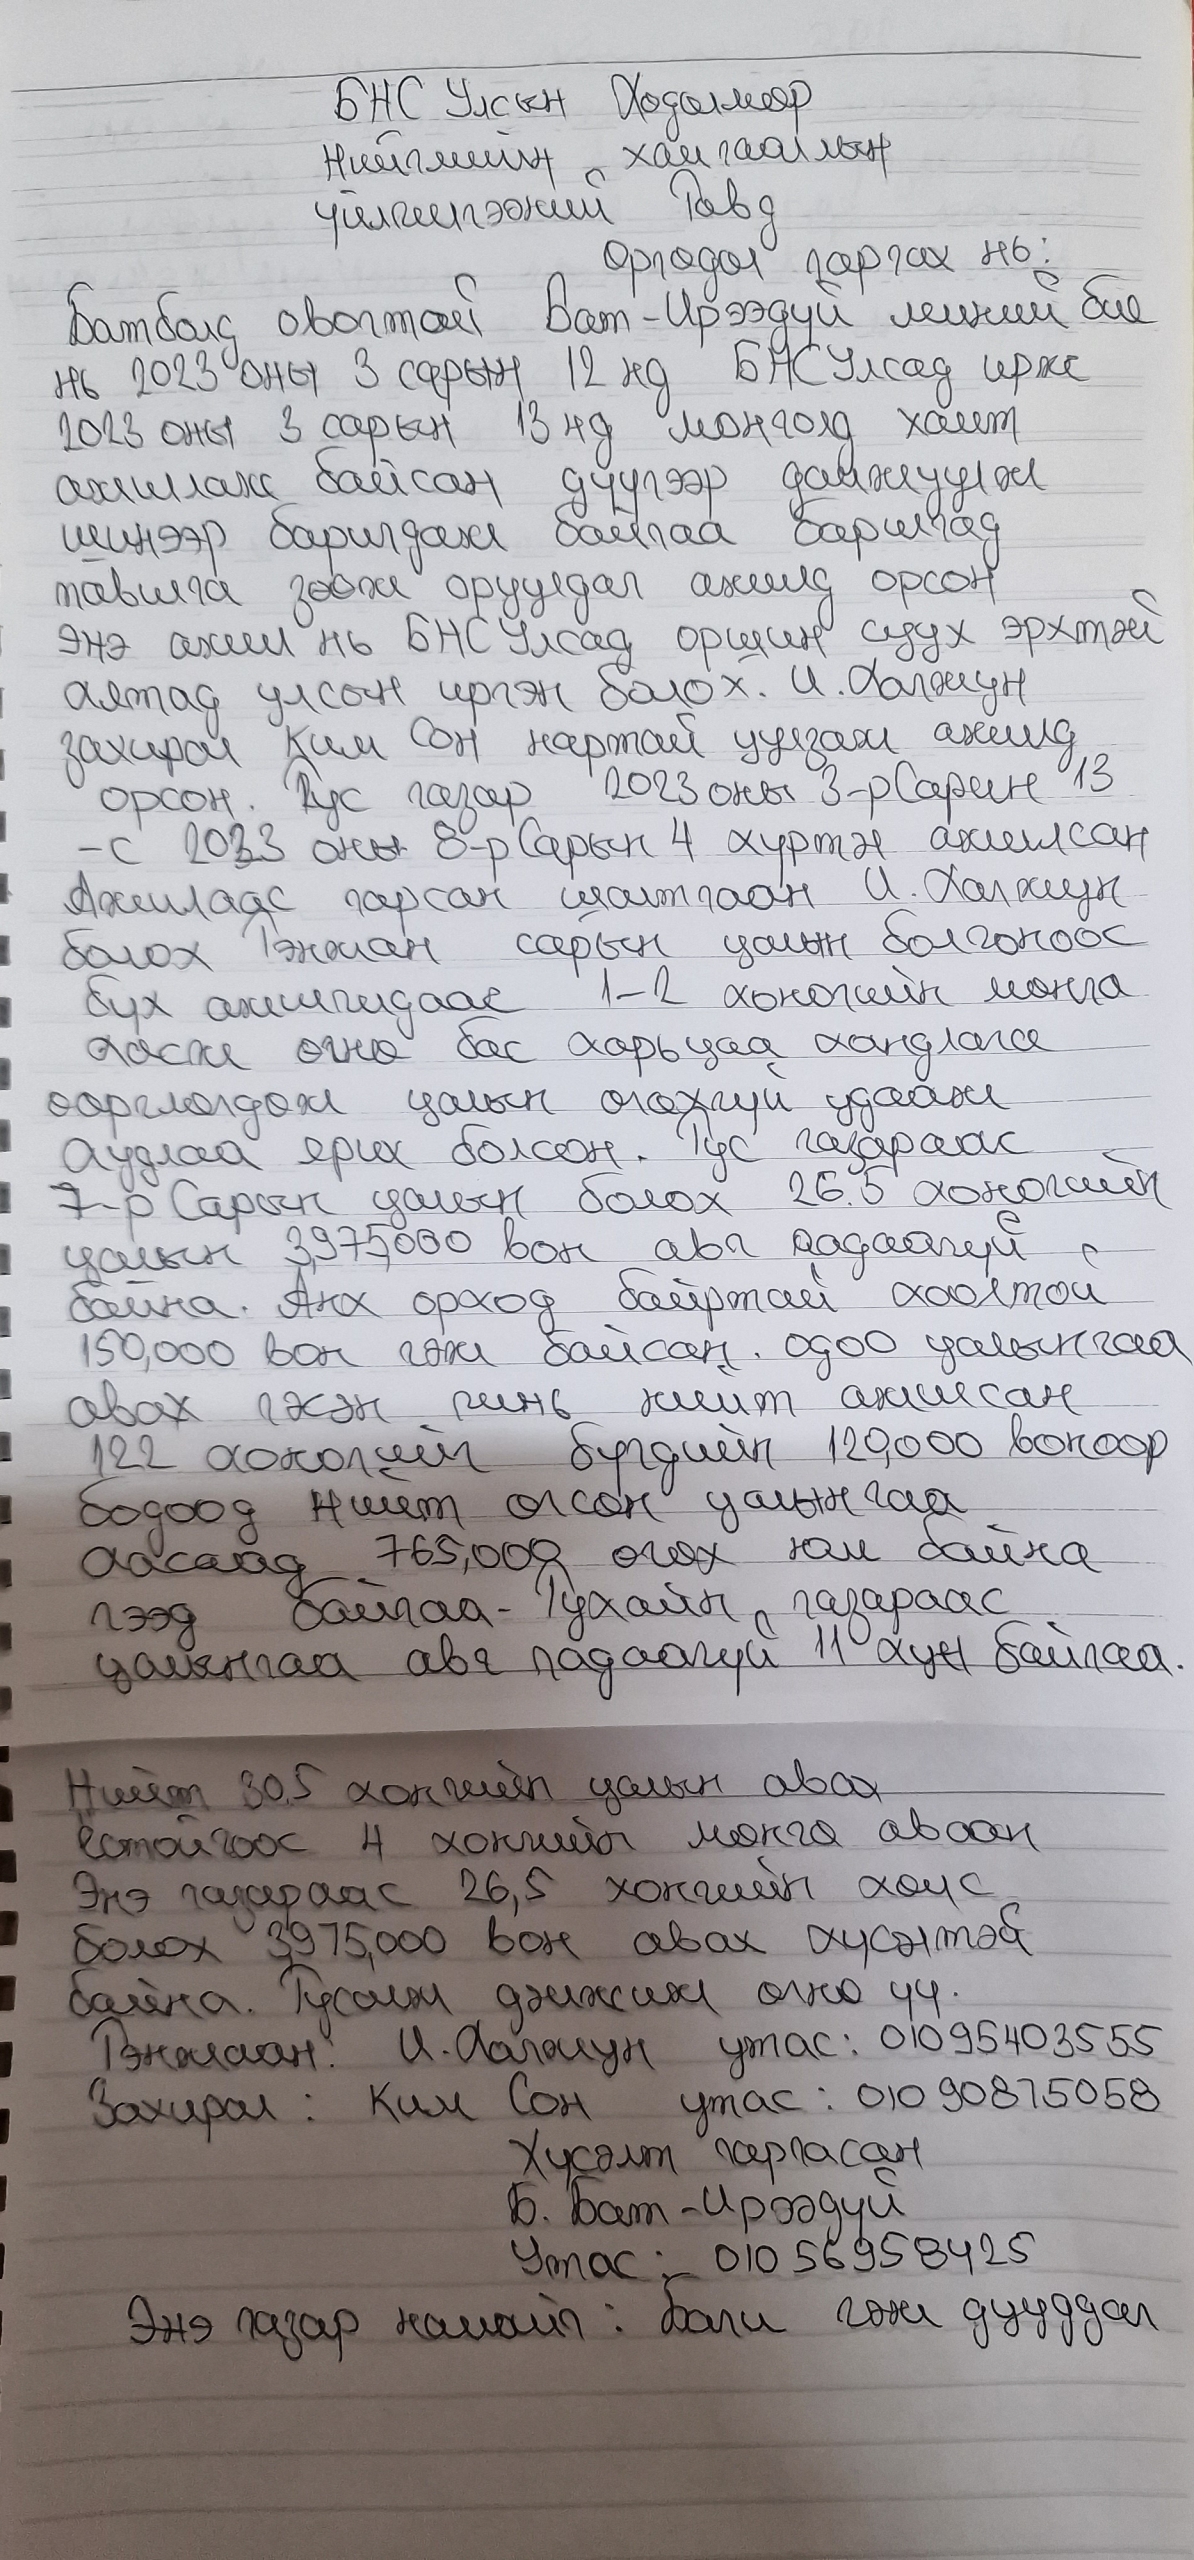 БНС Улсын Ходолмор
Нийгмийн хамгаалын
үйлчилгээний Товд
Оргодол гаргах нь:
Батболд овогтой Бат-Ирээдүй миний бие
нь 2023 оны 3 сарын 12 нд БНС Улсад ирж
2023 оны 3 сарын 13 нд монголд хамт
ажиллаж байсан дүүгээр дамжуулж
шинээр баригдаж байгаа барилгад
тавилга зөөж оруулдаг ажилд орсон
Энэ ажил нь БНС Улсад оршин суух эрхтэй
хятад улсын иргэн болох. И. Халжун
захирал Ким Сон нартай уулзаж ажилд
орсон. Тус газар 2023 оны 3-р Сарын 13
-с 2023 оны 8-р Сарын 4 хүртэл ажилсан
Ажилаас гарсан шалтгаан И. Халжун
болох Тэнжан сарын цалин болгоноос
бүх ажилчидаас 1-2 хоногийн монго
хасж огно бас харьцаа хандлага
оорчлогдож цалин огохгүй удааж
худлаа ярих болсон. Тус газараас
7-р Сарын цалин болох 26.5 хоногийн
цалин 3,975,000 вон авч чадаагүй
байна. Анх ороход байртай хоолтой
150,000 вон гэж байсан. одоо цалингаа
авах гэсэн чинь нийт ажилсан
122 хоногийг бүгдийг 120,000 воноор
бодоод Нийт огсон цалингаа
хасаад 765,000 огох юм байна
гээд байгаа- Тухайн газараас
цалингаа авч чадаагүй 11 хүн байгаа.
Нийт 30.5 хонгийн цалин авах
ёстойгоос 4 хонгийн монго авсан
Энэ газараас 26,5 хонгийн холс
болох 3,975,000 вон авах хүсэлтэй
байна. Тусалж дэмжиж огно уу.
Тэнжаан: И. Халжун утас: 01095403555
Захирал: Ким Сон утас: 01090875058
Хүсэлт гаргасан
Б. Бат-Ирээдүй
Утас: 01056958425
Энэ газар намайг: Баги гэж дууддаг